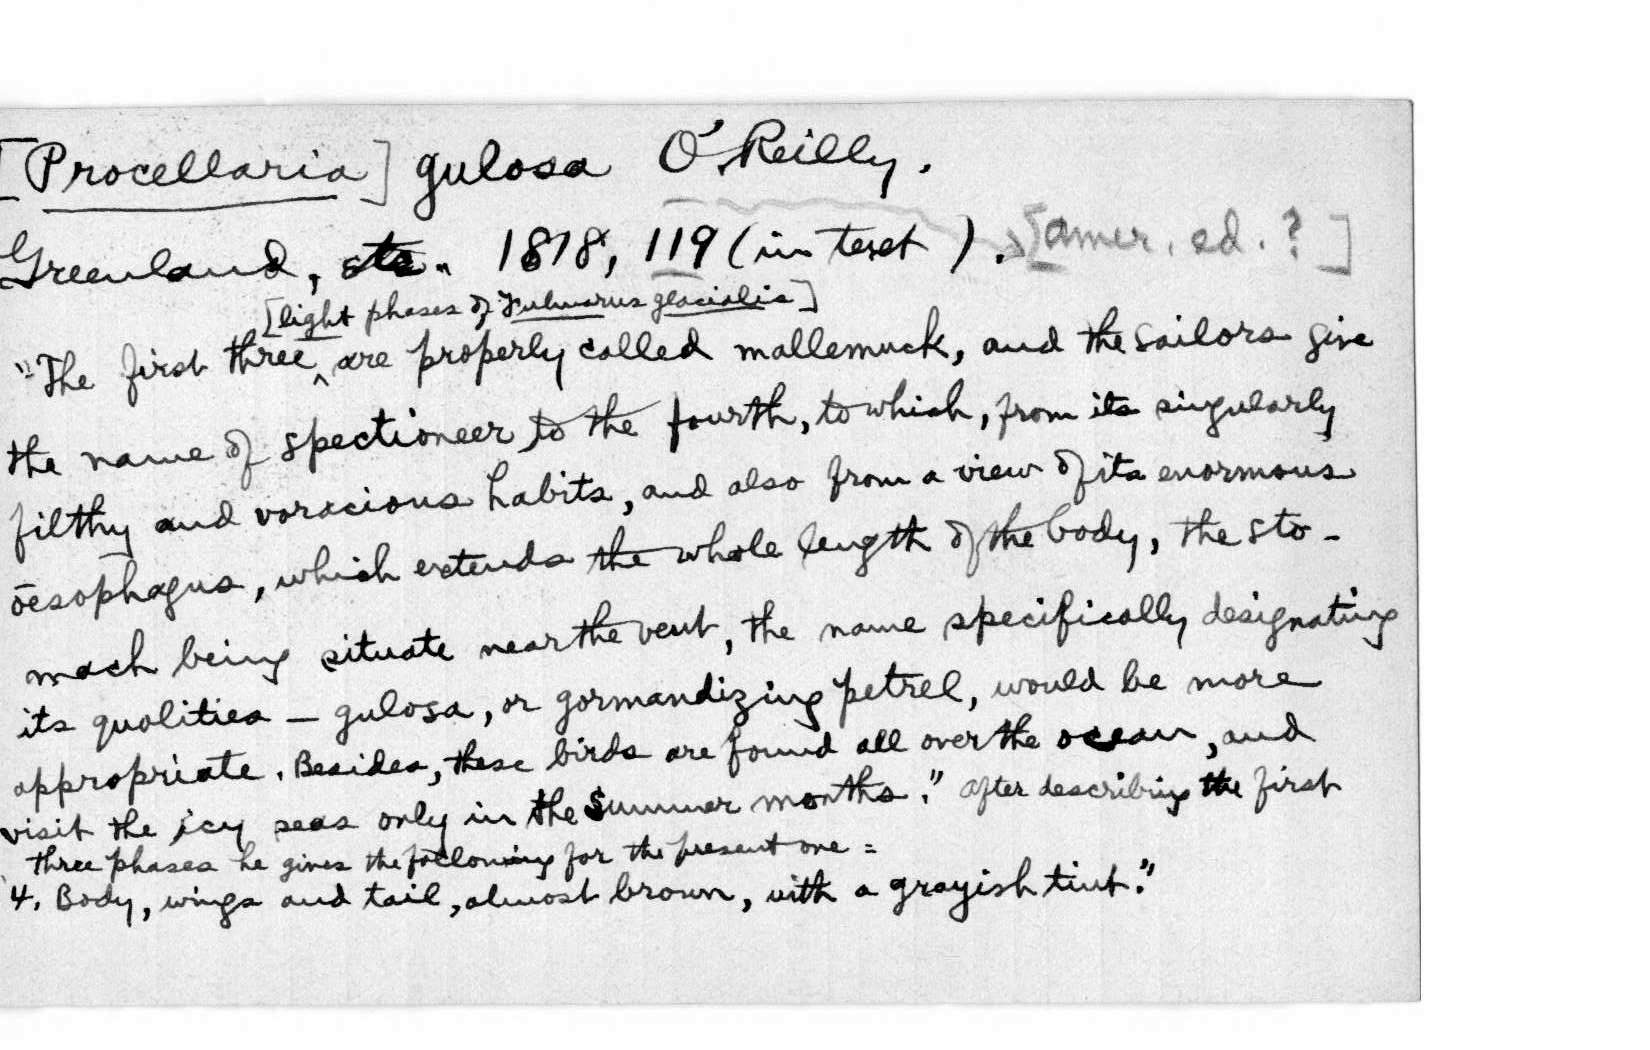 [Procellaria] gulosa O'Reilly.
Greenland, etc. 1818, 119 (in text). [Amer. ed. ?]
[light phases of Fulmarus glacialis]
"The first three ^ are properly called mallemuck, and the sailors give
the name of spectioneer to the fourth, to which, from its singularly
filthy and voracious habits, and also from a view of its enormous
oesophagus, which extends the whole length of the body, the sto-
mach being situate near the vent, the name specifically designating
its qualities — gulosa, or gormandizing petrel, would be more
appropriate. Besides, these birds are found all over the ocean, and
visit the icy seas only in the summer months." After describing the first
three phases he gives the following for the present one =
4. Body, wings and tail, almost brown, with a grayish tint."